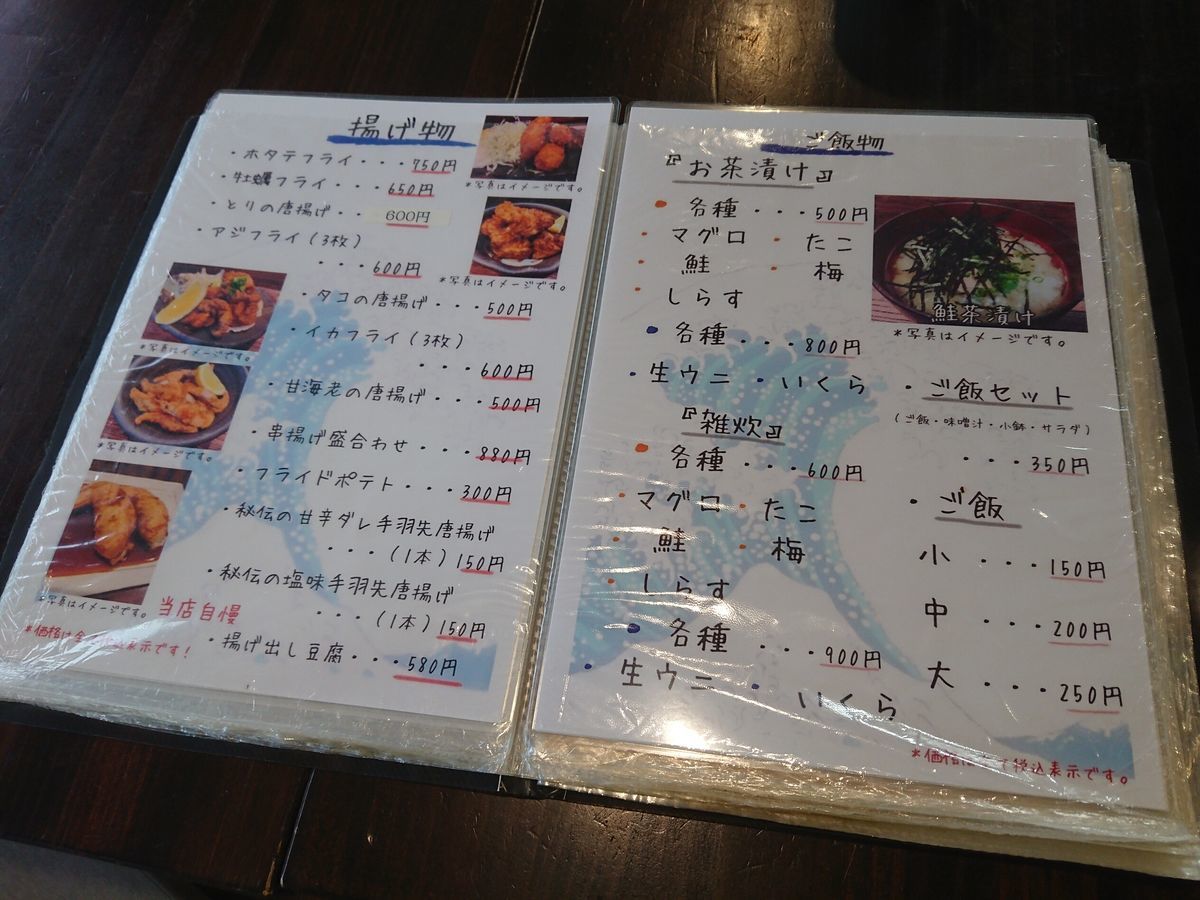 揚げ物
・ホタテフライ・・・750円
・牡蠣フライ・・・650円
＊写真はイメージです。
・とりの唐揚げ・・600円
・アジフライ(3枚)
・・・600円
＊写真はイメージです。
・タコの唐揚げ・・・500円
・イカフライ(3枚)
・・・600円
＊写真はイメージです。
・甘海老の唐揚げ・・・500円
・串揚げ盛合わせ・・・880円
＊写真はイメージです。
・フライドポテト・・・300円
・秘伝の甘辛ダレ手羽先唐揚げ
・・・(1本)150円
・秘伝の塩味手羽先唐揚げ
・・・(1本)150円
＊写真はイメージです。
当店自慢
・揚げ出し豆腐・・・580円
＊価格は全て税込表示です！
ご飯物
『お茶漬け』
・各種・・・500円
・マグロ ・たこ
・鮭 ・梅
・しらす
鮭茶漬け
＊写真はイメージです。
・各種・・・800円
・生ウニ・いくら
『雑炊』
・各種・・・600円
・マグロ・たこ
・鮭 ・梅
・しらす
・各種・・・900円
・生ウニ・いくら
・ご飯セット
(ご飯・味噌汁・小鉢・サラダ)
・・・350円
・ご飯
小・・・150円
中・・・200円
大・・・250円
＊価格は全て税込表示です。